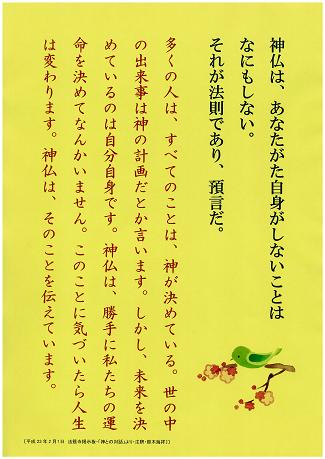 神仏は、あなたがた自身がしないことは
なにもしない。
それが法則であり、預言だ。
多くの人は、すべてのことは、神が決めている。世の中
の出来事は神の計画だとか言います。しかし、未来を決
めているのは自分自身です。神仏は、勝手に私たちの運
命を決めてなんかいません。このことに気づいたら人生
は変わります。神仏は、そのことを伝えています。